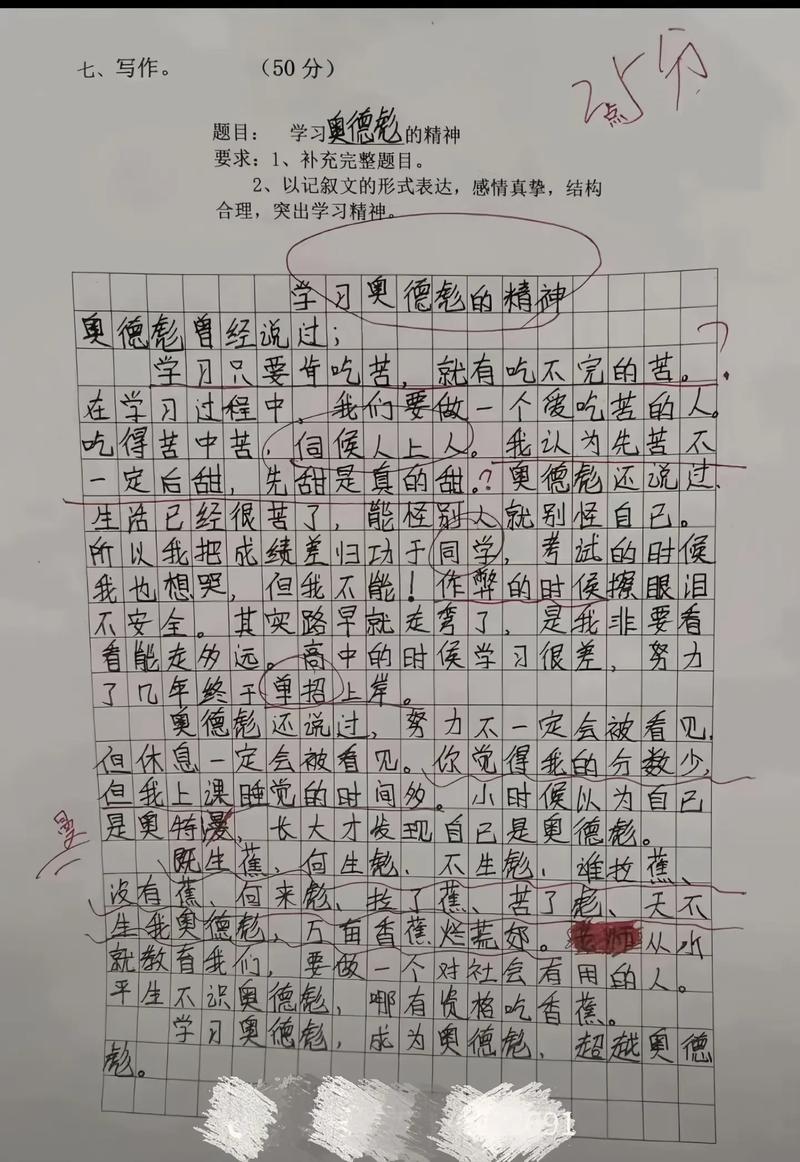 七、写作。 （50 分）
25分
题目： 学习奥德彪的精神
要求：1、补充完整题目。
2、以记叙文的形式表达，感情真挚，结构
合理，突出学习精神。
学习奥德彪的精神
奥德彪曾经说过；
学习只要肯吃苦，就有吃不完的苦。?
在学习过程中，我们要做一个爱吃苦的人。
吃得苦中苦，伺候人上人。我认为先苦不
一定后甜，先甜是真的甜。?奥德彪还说过，
生活已经很苦了，能怪别人就别怪自己。
所以我把成绩差归功于同学，考试的时候
我也想哭，但我不能！作弊的时候擦眼泪
不安全。其实路早就走弯了，是我非要看
看能走多远。高中的时候学习很差，努力
了几年终于单招上岸。
奥德彪还说过，努力不一定会被看见，
但休息一定会被看见。你觉得我的分数少，
但我上课睡觉的时间多。小时候以为自己
是奥特曼，长大才发现自己是奥德彪。
既生蕉，何生彪，不生彪，谁拉蕉、
没有蕉、何来彪、拉了蕉、苦了彪、天不
生我奥德彪，万亩香蕉烂荒郊。老师从小
就教育我们，要做一个对社会有用的人。
平生不识奥德彪，哪有资格吃香蕉。
学习奥德彪，成为奥德彪，超越奥德
彪。